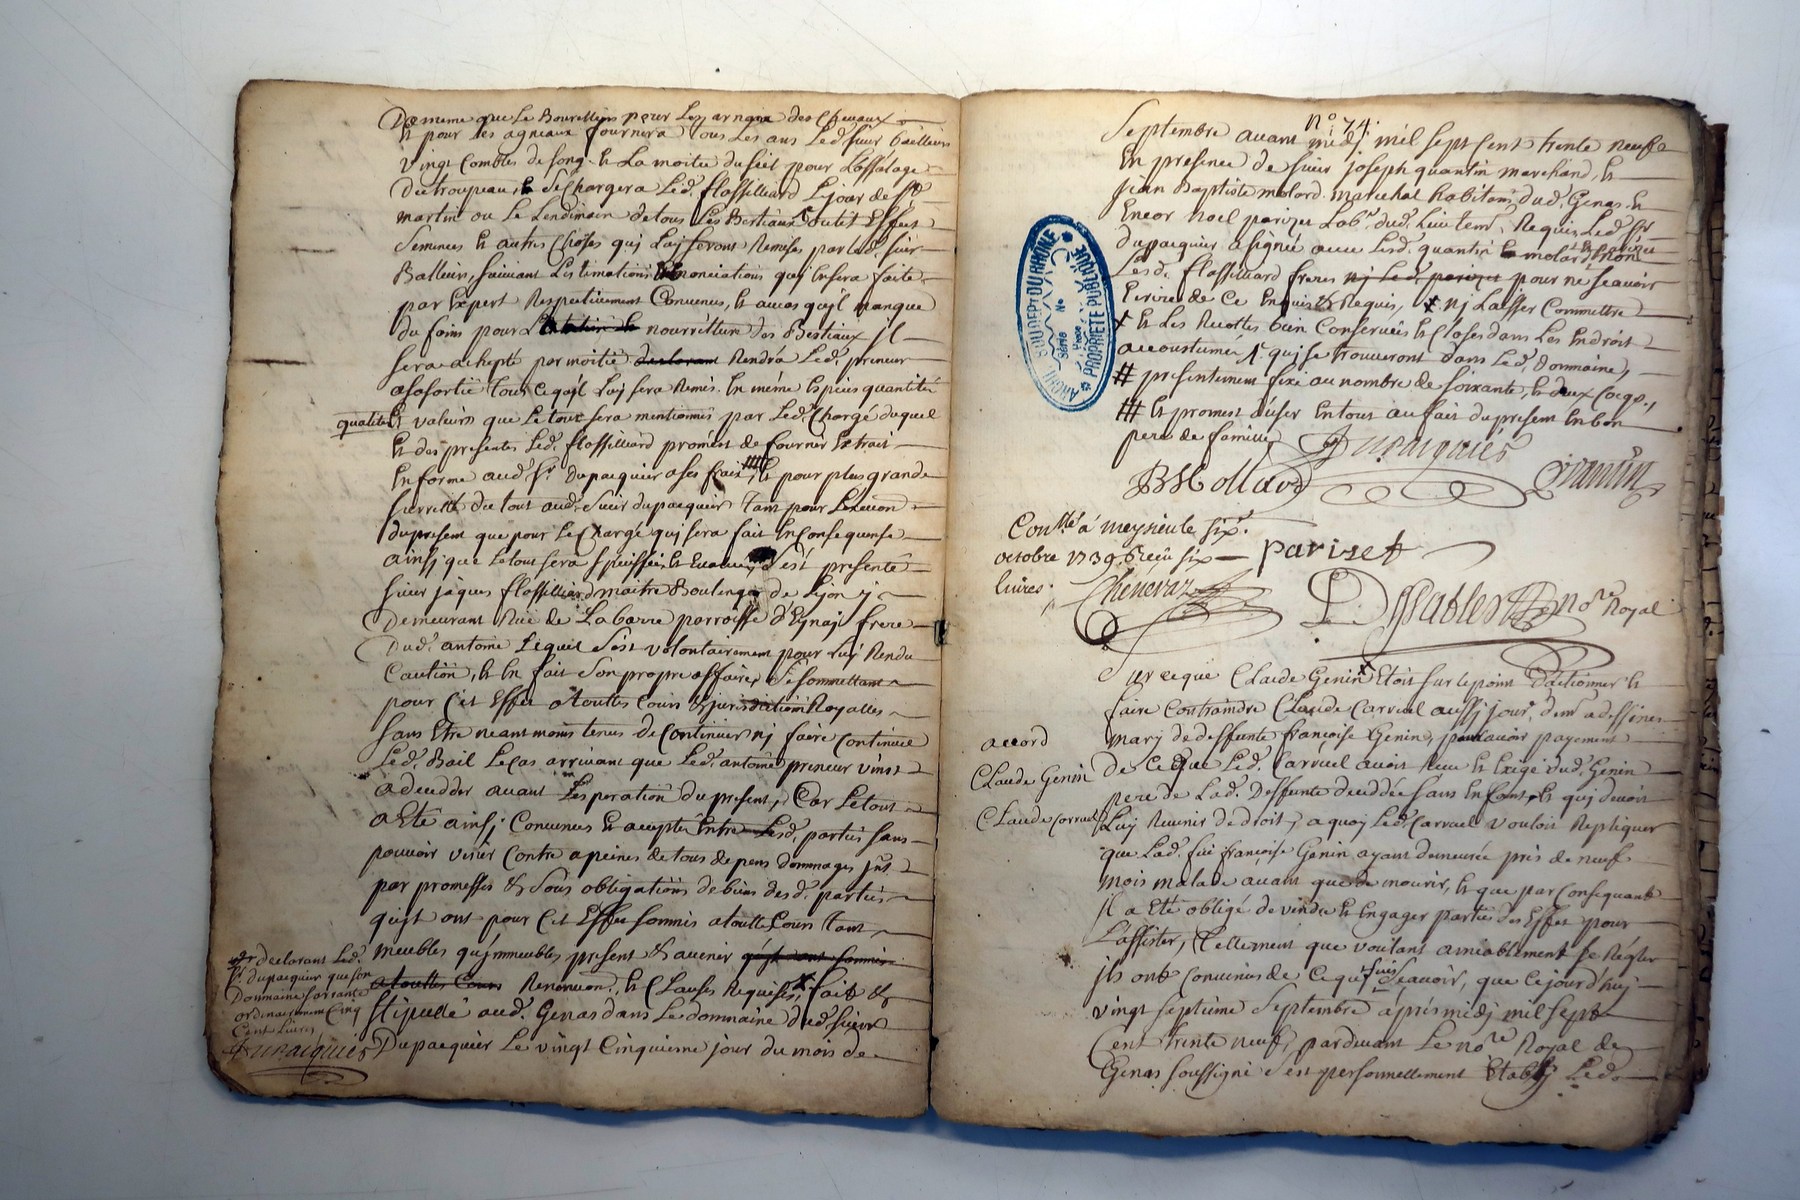 De meme que Le Bourellier pour Les arnaix des Chevaux
Et pour Les agneaux fournira tous Les ans Led. sieur bailleur
vingt Combles de foing & La moitié du sel pour
du troupeau, Se Chargera Led. flassilliard Le jour de st
martin ou Le Lendemain de tous Les Bestiaux outit Effect
Semences Et autres Choses quj Luj seront Remises par Led. sieur
Bailleur, suivant Lestimation quj Ensera faite
par Expert Respectivement Convenus, Et aucas qu'jl manque
du foins pour La nourritture des Bestiaux jl
sera achepté par moitié Rendra Led. preneur
asasortie tout Ce qujl Luj sera Remis En méme Espéce quantité
qualité Et valeur que Le tout sera mentionnés par Led. Chargé duquel
Et des presentes Led. flassilliard promest de fournir Extrait
En forme aud. sr. Dupacquier a ses frais # Et pour plus grande
surretté du tout aud. sieur dupacquier tant pour Lexecon
dupresent que pour Le Chargé quj sera fait En Consequense
ainsj que Le tout sera s'est presenté
sieur jâques flassilliard maitre Boulenger de Lyon y
Demeurant Rüe de La barre parroisse d'Eynaj frere
Dud. antoine Lequel s'est volontairement pour Luj Rendu
Caution, Et En fait son propre affaire, Se sommettant
pour Cet Effet a touttes Cours & jurisdiction Royalles
sans Etre neantmoins tenus de Continuer nj faire Continuer
Led. Bail Le Cas arrivant que Led. antoine preneur vinst
a decedder avant Lesperation du present, Car Le tout
a Eté ainsj Convenus Et accepté Entre Lesd. parties sans
pouvoir venir Contre a peines de tous depens dommages jnts
par promesses & sous obligations de biens desd. parties
qujst ont pour Cet Effet somnis a toutte Cours tant
meubles qu'jmmeubles present & avenir qujst ont somnis
a touttes Cours Renoncon. Et Clauses Requises, x fait &
stipullé aud. Genas dans Le domnaine dud. sieur
Dupacquier Le vingt Cinquieme jour du mois de
x declarant Led.
sr. dupacquier que son
Doumaine
ordinairement Cinq
Cent Livres
Dupacquier
No. 74.
Septembre avant midj mil sept Cent trente neufe
En presence de sieur joseph quantin marchand, Et
jean Baptiste molard marechal habitans dud. Genas Et
Encor noel parizet Labr. dud. Lieu tem. Requis Led. sr
dupacquier a signée avec Lesd. quantin Et molard Et parizet non
Lesd. flassilliard freres nj Led. parizet pour ne scavoir
Ecrire de Ce Enquis & Requis, x nj Laisser Commettre
x Et Les Recoltes bien Conservées Et Closes dans Les Endroit
accoustumés, quj se trouveront dans Led. Domnaine,
# presentement fixé au nombre de soixante, Et deux
# Et promest d'user Entout au fait du present En bon
pere de famille
Dupacquier
B Mollard
Quantin
Conllé a meysieulx six.
octobre 1739 Receu six
livres.
Chenevaz
parizet
Dessables nore Royal
accord
Claude Genin
Claude Carruel
Sur ceque Claude Genin Etoit sur le point d'actionner Et
faire Contraindre Claude Carruel aussj jour. dem. a dessines
marj de deffunte françoise Genin, pour avoir payement
de Ce que Led. Carruel avoit Receu Et Exigé dud. Genin
pere de Lad. Deffunte deceddée sans Enfant, Et quj devoit
Luj Revenir de droit, a quoj Led. Carruel vouloit Repliquer
que Lad. füe françoise Genin ayant demeurée prés de neuf
mois malade avant que de mourir, Et que par Consequant
jl a Eté obligé de vendre Et Engager partie des Effet pour
L'assister, Tellement que voulant amiablement se Régler
jls ont Convenus de Ce qui suis Scavoir, que Cejourd'huj
vingt septieme Septembre aprés midj mil sept
Cent trente neuf, pardevant Le nore Royal de
Genas soussigné s'est personnellement Etablj Led.
ARCHI. DU DEPT DU RHÔNE
Série No
Pièce
PROPRIÉTÉ PUBLIQUE